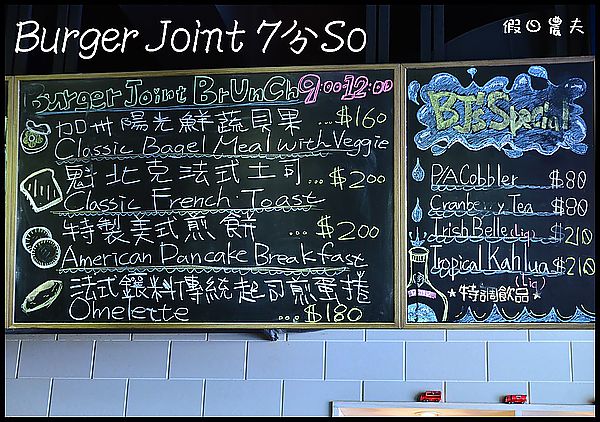 Burger Joint 7分So
假日農夫
Burger Joint BrUnCh 9:00-12:00
加州陽光鮮蔬貝果 ...$160
Classic Bagel Meal with Veggie
魁北克法式土司 ... $200
Classic French Toast
特製美式煎餅 ... $200
American Pancake Breakfast
法式餡料傳統起司煎蛋捲
Omelette ...$180
BJ's Special
P/A Cobbler $80
Tea $80
Irish Belle(liq) $210
Tropical Kahlua $210
(liq)
★特調飲品★